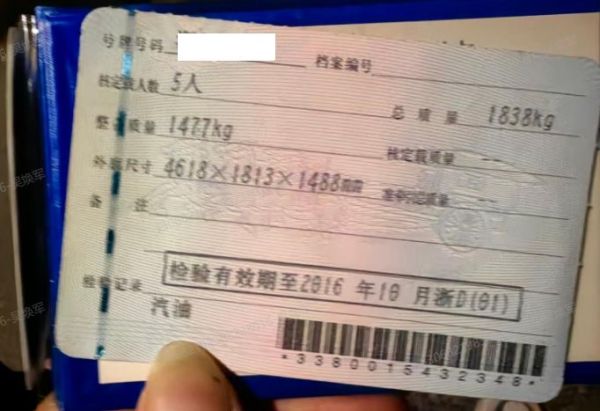 号牌号码 档案编号
核定载人数 5人 总质量 1838kg
整备质量 1477kg 核定载质量 --
外廓尺寸 4618×1813×1488mm 准牵引总质量 --
备 注
检验记录 检验有效期至2016 年10 月浙D(01)
汽油
*3380015432348*